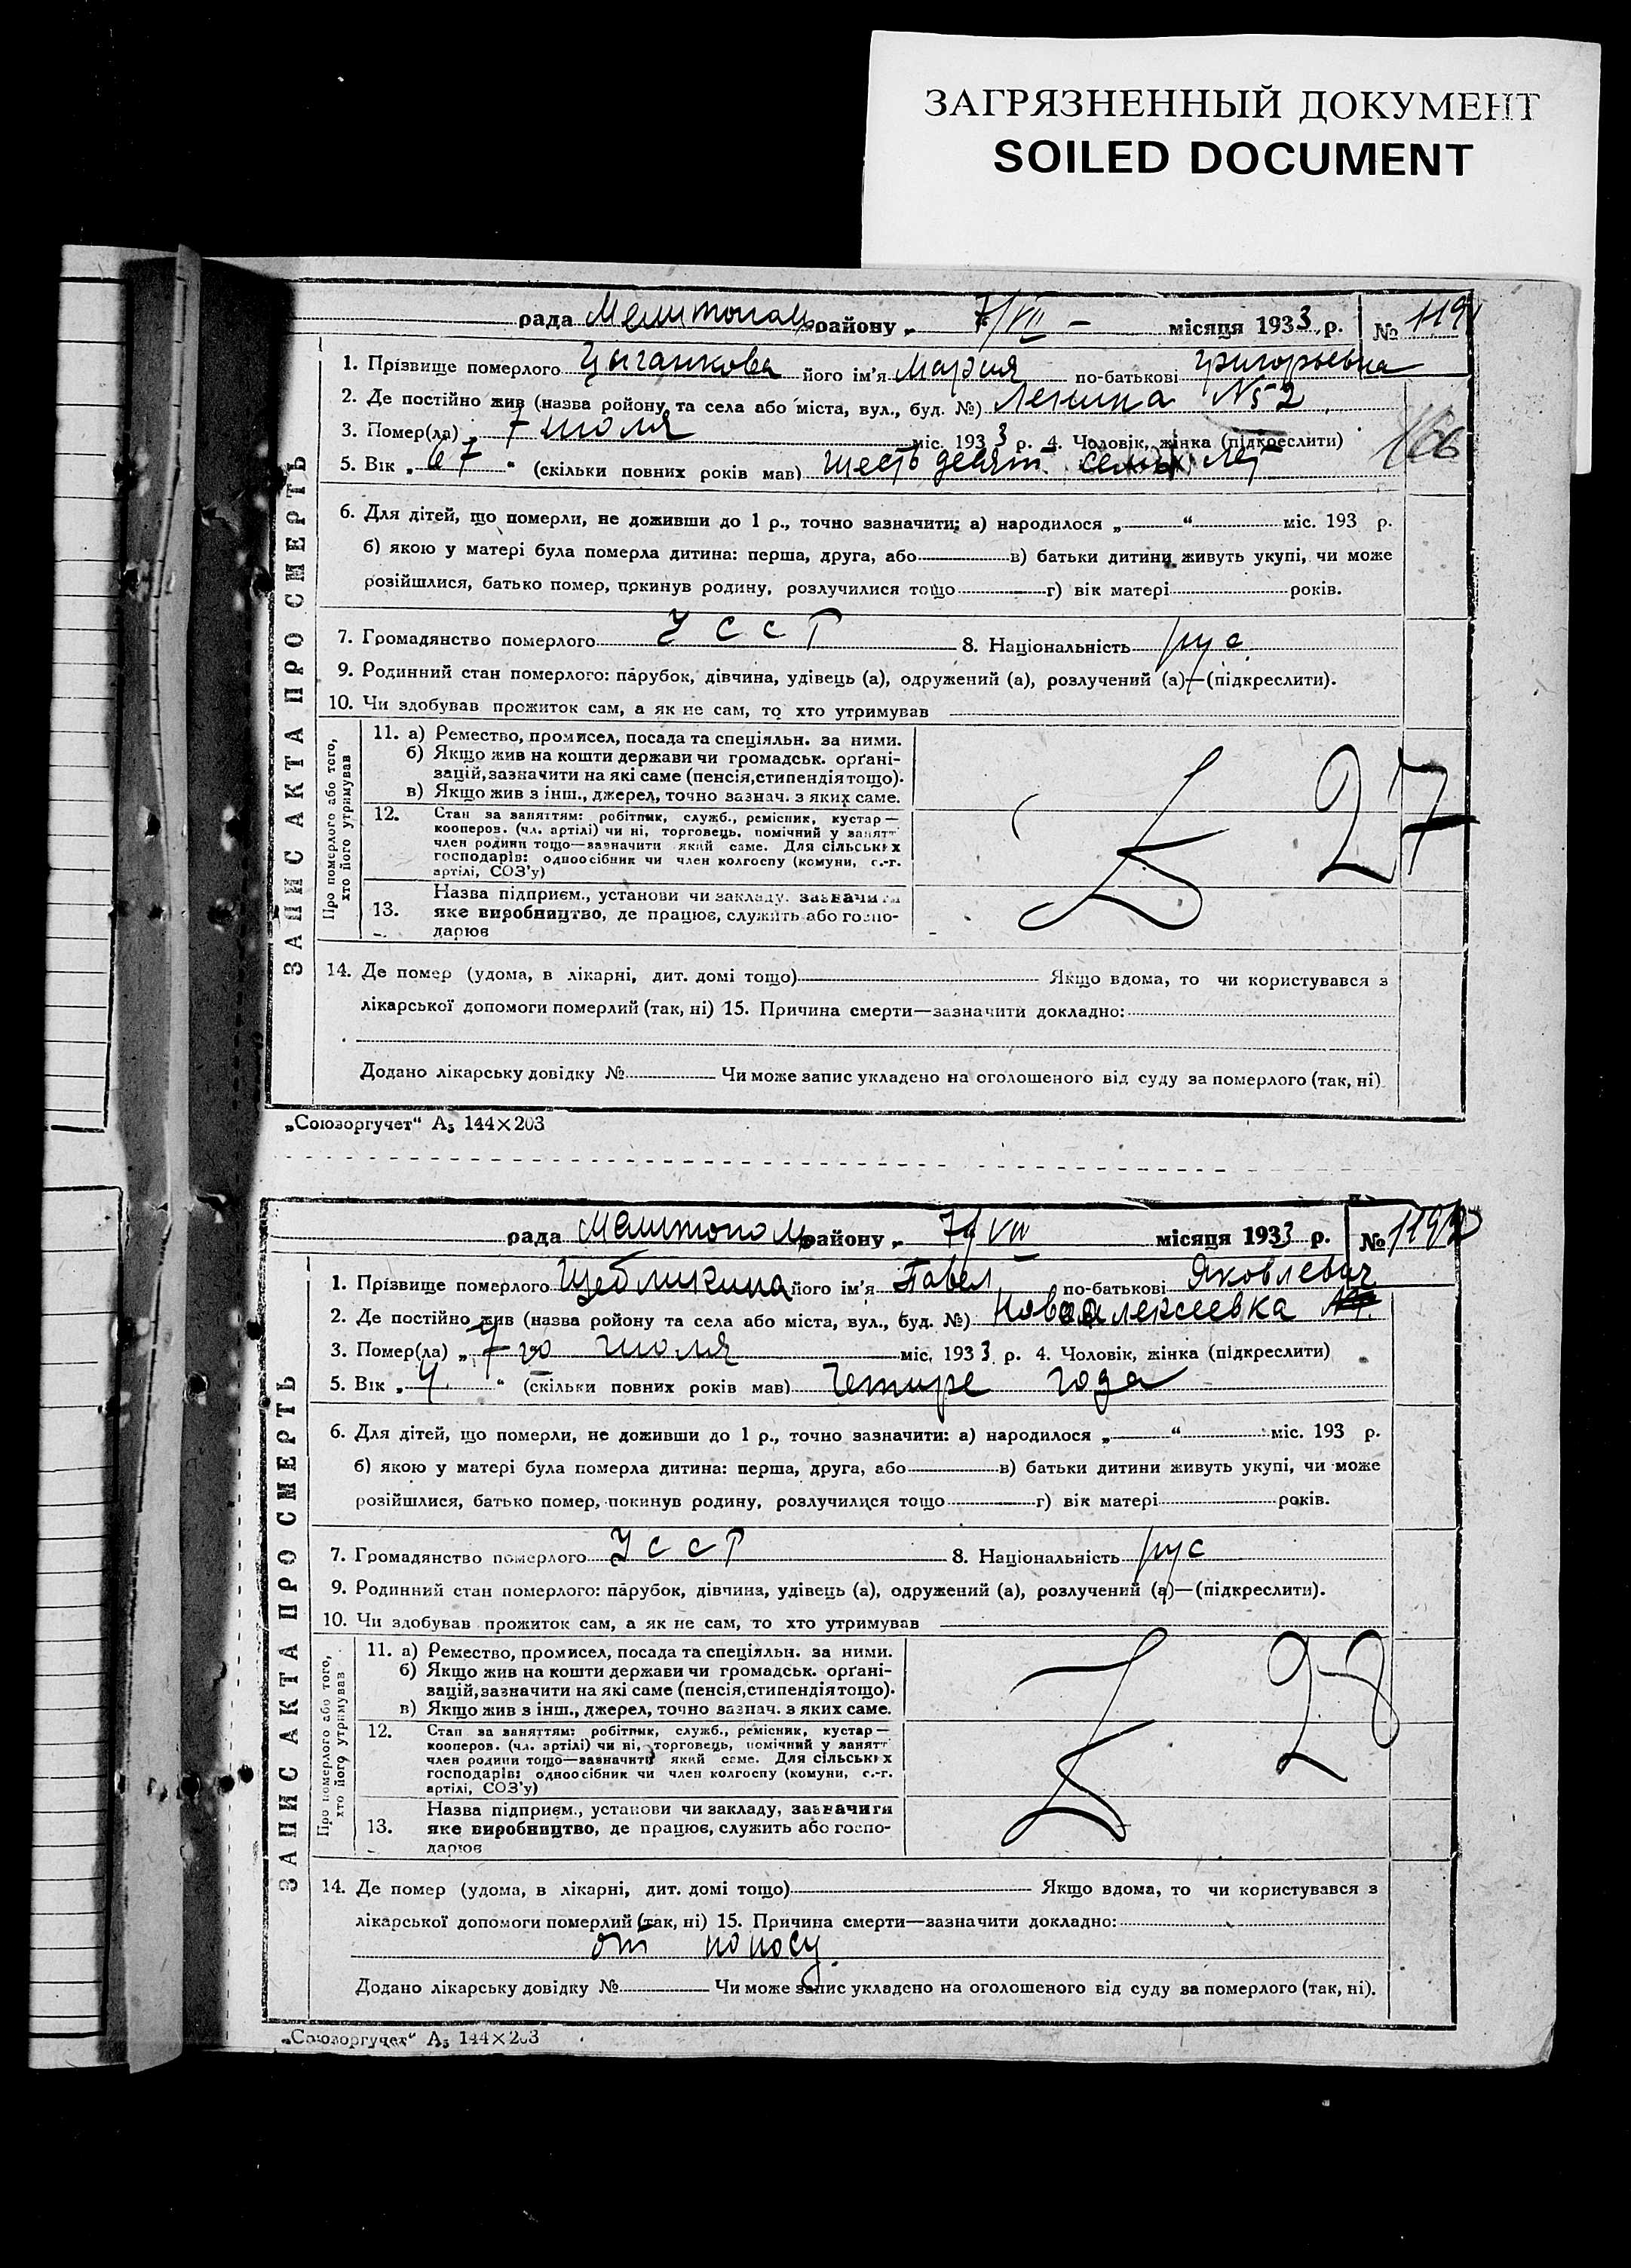 ЗАГРЯЗНЕННЫЙ ДОКУМЕНТ
SOILED DOCUMENT
рада Мелитополь району „ 7/VII – місяця 1933 р. № 119
1. Прізвище померлого Цыганкова його ім'я Мария по-батькові Григорьевна
2. Де постійно жив (назва ройону та села або міста, вул., буд. №) Ленина № 2
3. Помер(ла) „ 7 июля міс. 1933 р. 4. Чоловік, жінка (підкреслити)
5. Вік „ 67 “ (скільки повних років мав) шестьдесят семь лет
6. Для дітей, що померли, не доживши до 1 р., точно зазначити: а) народилося „ “ міс. 193 р.
б) якою у матері була померла дитина: перша, друга, або в) батьки дитини живуть укупі, чи може
розійшлися, батько помер, покинув родину, розлучилися тощо г) вік матері років.
7. Громадянство померлого УССР 8. Національність рус.
9. Родинний стан померлого: парубок, дівчина, удівець (а), одружений (а), розлучений (а)—(підкреслити).
10. Чи здобував прожиток сам, а як не сам, то хто утримував
ЗАПИС АКТА ПРО СМЕРТЬ
Про померлого або того, хто його утримував
11. а) Ремество, промисел, посада та спеціяльн. за ними.
б) Якщо жив на кошти держави чи громадськ. орґані-
зацій, зазначити на які саме (пенсія, стипендія тощо).
в) Якщо жив з інш., джерел, точно зазнач. з яких саме.
27
12. Стан за заняттям: робітник, служб., ремісник, кустар—
кооперов. (чл. артілі) чи ні, торговець, помічний у занятт
член родини тощо—зазначити який саме. Для сільських
господарів: одноосібник чи член колгоспу (комуни, с.-г.
артілі, СОЗ'у)
13. Назва підприєм., установи чи закладу, зазначити
яке виробництво, де працює, служить або госпо-
дарює
14. Де помер (удома, в лікарні, дит. домі тощо) Якщо вдома, то чи користувався з
лікарської допомоги померлий (так, ні) 15. Причина смерти—зазначити докладно:
Додано лікарську довідку № Чи може запис укладено на оголошеного від суду за померлого (так, ні)
„Союзоргучет“ А5 144×203
рада Мелитополь району „ 7/VII місяця 1933 р. № 1192
1. Прізвище померлого Щебликина його ім'я Павел по-батькові Яковлевич
2. Де постійно жив (назва ройону та села або міста, вул., буд. №) Новоалексеевка
3. Помер(ла) „ 7го июля міс. 1933 р. 4. Чоловік, жінка (підкреслити)
5. Вік „ 4 “ (скільки повних років мав) Четире года
6. Для дітей, що померли, не доживши до 1 р., точно зазначити: а) народилося „ “ міс. 193 р.
б) якою у матері була померла дитина: перша, друга, або в) батьки дитини живуть укупі, чи може
розійшлися, батько помер, покинув родину, розлучилися тощо г) вік матері років.
7. Громадянство померлого УССР 8. Національність рус
9. Родинний стан померлого: парубок, дівчина, удівець (а), одружений (а), розлучений (а)—(підкреслити).
10. Чи здобував прожиток сам, а як не сам, то хто утримував
ЗАПИС АКТА ПРО СМЕРТЬ
Про померлого або того, хто його утримував
11. а) Ремество, промисел, посада та спеціяльн. за ними.
б) Якщо жив на кошти держави чи громадськ. орґані-
зацій, зазначити на які саме (пенсія, стипендія тощо).
в) Якщо жив з інш., джерел, точно зазнач. з яких саме.
28
12. Стан за заняттям: робітник, служб., ремісник, кустар—
кооперов. (чл. артілі) чи ні, торговець, помічний у занятт
член родини тощо—зазначити який саме. Для сільських
господарів: одноосібник чи член колгоспу (комуни, с.-г.
артілі, СОЗ'у)
13. Назва підприєм., установи чи закладу, зазначити
яке виробництво, де працює, служить або госпо-
дарює
14. Де помер (удома, в лікарні, дит. домі тощо) Якщо вдома, то чи користувався з
лікарської допомоги померлий (так, ні) 15. Причина смерти—зазначити докладно:
от поносу
Додано лікарську довідку № Чи може запис укладено на оголошеного від суду за померлого (так, ні).
„Союзоргучет“ А5 144×203